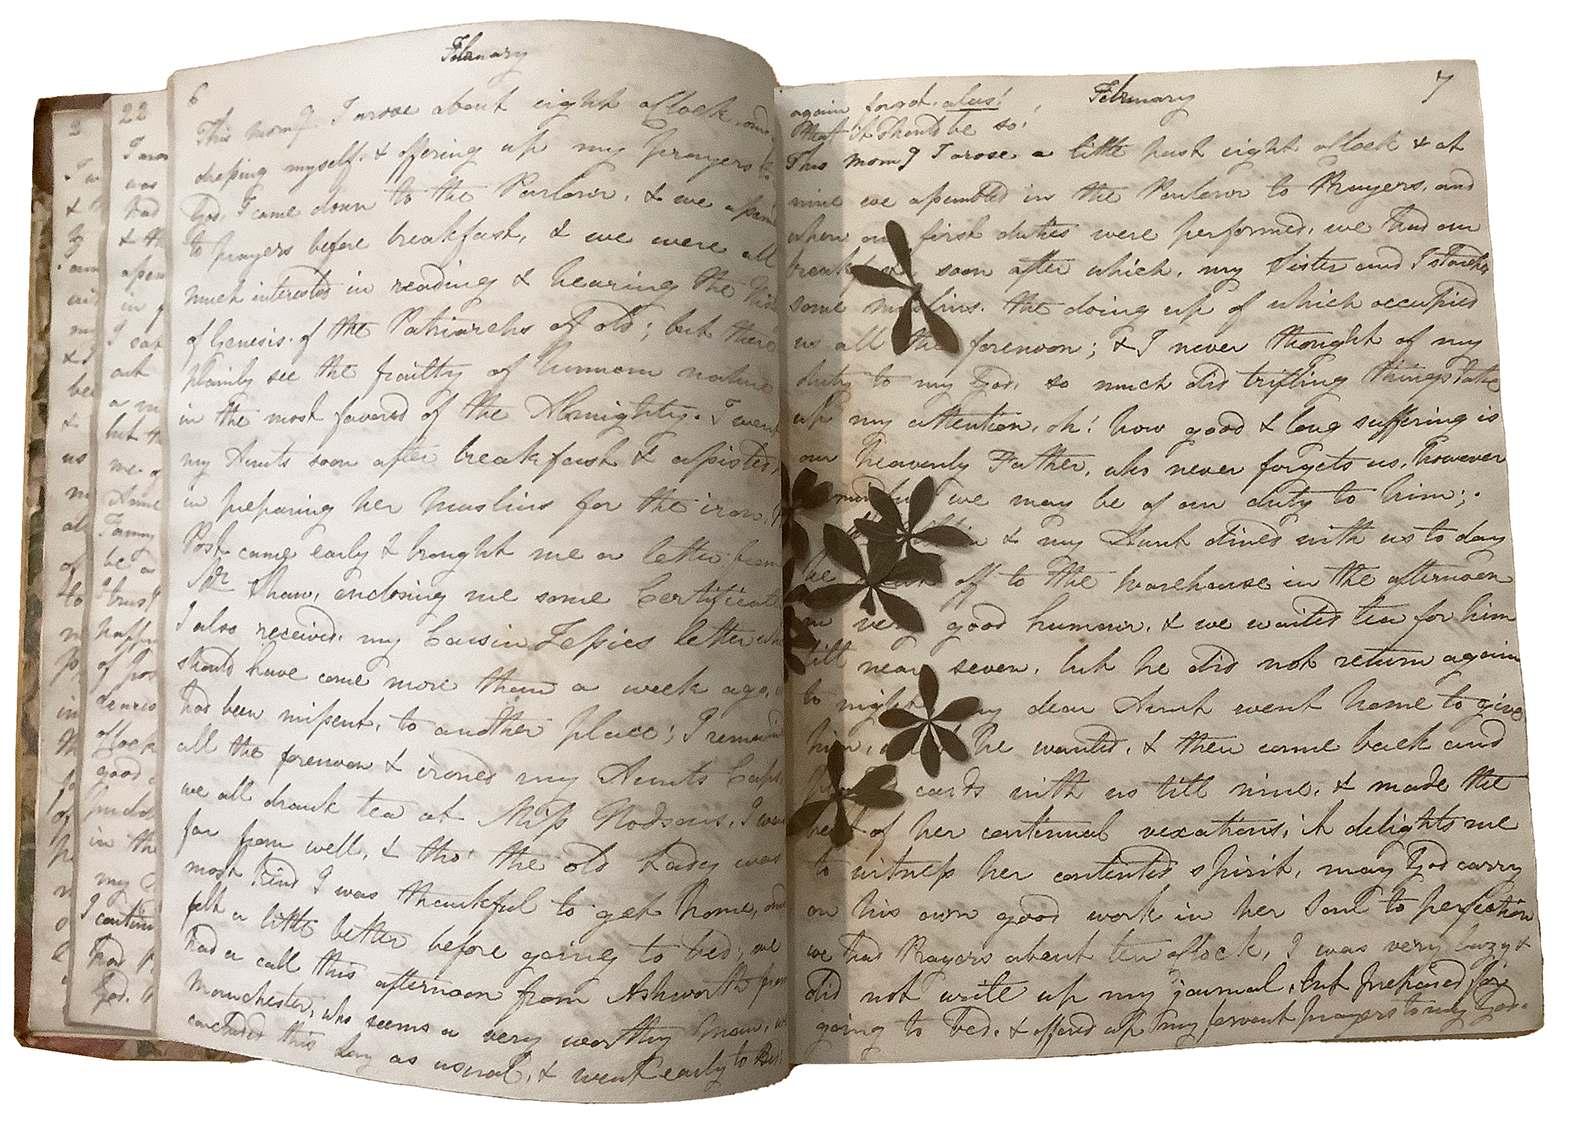 February
6
This morng. I arose about eight o'Clock, and
dressing myself, & offering up my prayers to
God, I came down to the Parlour, & we assem
to prayers before breakfast, & we were all
much interested in reading & hearing the
of Genesis, of the Patriarchs of old; but there
plainly see the frailty of human nature
in the most favored of the Almighty. I went
my Aunts soon after breakfast & assisted
in preparing her muslins for the iron,
Post came early & brought me a letter from
Mr. Shaw, enclosing me some Certificate
I also received my Cousin letter
should have come more than a week ago,
had been missent, to another place; I remain'd
all the forenoon & ironed my Aunts Caps,
we all drank tea at Miss Hodsons, I was
far from well, & tho' the old Lady was
most kind I was thankful to get home, and
felt a little better before going to bed; we
had a call this afternoon from Ashworth from
Manchester, who seems a very worthy man,
concluded this day as usual, & went early to Bed.
22
February
7
again forgot, alas!
that it should be so!
This morng I arose a little past eight o'Clock & at
nine we assembled in the Parlour to Prayers, and
when our first duties were performed, we had our
breakfast, soon after which, my Sister and I starched
some muslins, the doing up of which occupied
us all the forenoon; & I never thought of my
duty to my God, so much did trifling things take
up my attention, oh! how good & long suffering is
our heavenly Father, who never forgets us, however
we may be of our duty to him;
& my Aunt dined with us to day
he off to the Warehouse in the afternoon
in very good humour, & we waited tea for him
till near seven, but he did not return again
to night, my dear Aunt went home to give
him, he wanted, & then came back and
cards with us till nine, & made the
best of her continual vexations, it delights me
to witness her contented spirit, may God carry
on his own good work in her Soul to perfection
we had Prayers about ten o'Clock, I was very lazy &
did not write up my journal, but prepared for
going to bed, & offered up my fervent prayers to my God.